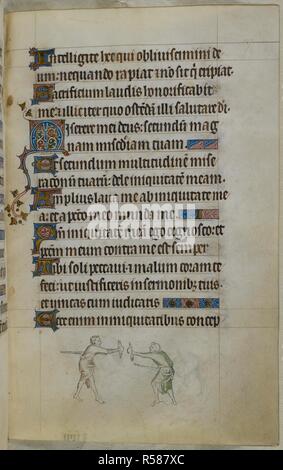 Intelligite hec qui obliuiscimini de
um: nequando rapiat & no sit q eripiat.
Sacrificium laudis honorificabit
me: & illic iter quo ostendā illi salutare di.
Miserere mei deus: secundum mag
nam misericordiam tuam.
Et secundum multitudinem mise
rationū tuarū: dele iniquitatē meam.
Amplius laua me ab iniquitate me
a: et a pctō meo munda me.
Qm̄ iniquitatē meā ego cognosco: et
pctm̄ meum contra me est semper.
Tibi soli peccaui & malum coram te
feci: ut iustificeris in sermonibz tuis
et uincas cum iudicaris
Ecce enim in iniquitatibus concep
alamy
Image ID: R587XC
www.alamy.com